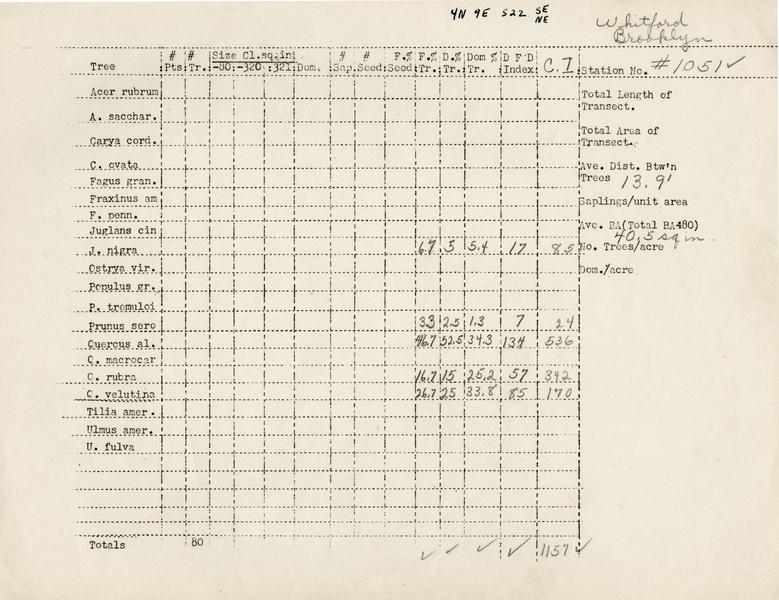 4N 9E S22 SE
NE
Whitford
Brooklyn
# # Size Cl.sq.in # # F.% F.% D.% Dom % D F D
Tree Pts Tr. -80 -320 321 Dom. Sap. Seed. Seed Tr. Tr. Tr. Index C. I. Station No. #1051 ✓
Acer rubrum Total Length of
Transect.
A. sacchar.
Total Area of
Carya cord. Transect.
C. ovata Ave. Dist. Btw'n
Fagus gran. Trees 13.9'
Fraxinus am Saplings/unit area
F. penn.
Juglans cin Ave. BA(Total BA÷80)
40.5 sq in.
J. nigra 6.7 5 5.4 17 85 No. Trees/acre
Ostrya vir. Dom./acre
Populus gr.
P. tremuloi
Prunus sero 3.3 2.5 1.3 7 24
Quercus al. 46.7 52.5 34.3 134 536
Q. macrocar
Q. rubra 16.7 15 25.2 57 342
Q. velutina 26.7 25 33.8 85 170
Tilia amer.
Ulmus amer.
U. fulva
Totals 80 ✓ ✓ ✓ ✓ 1157 ✓